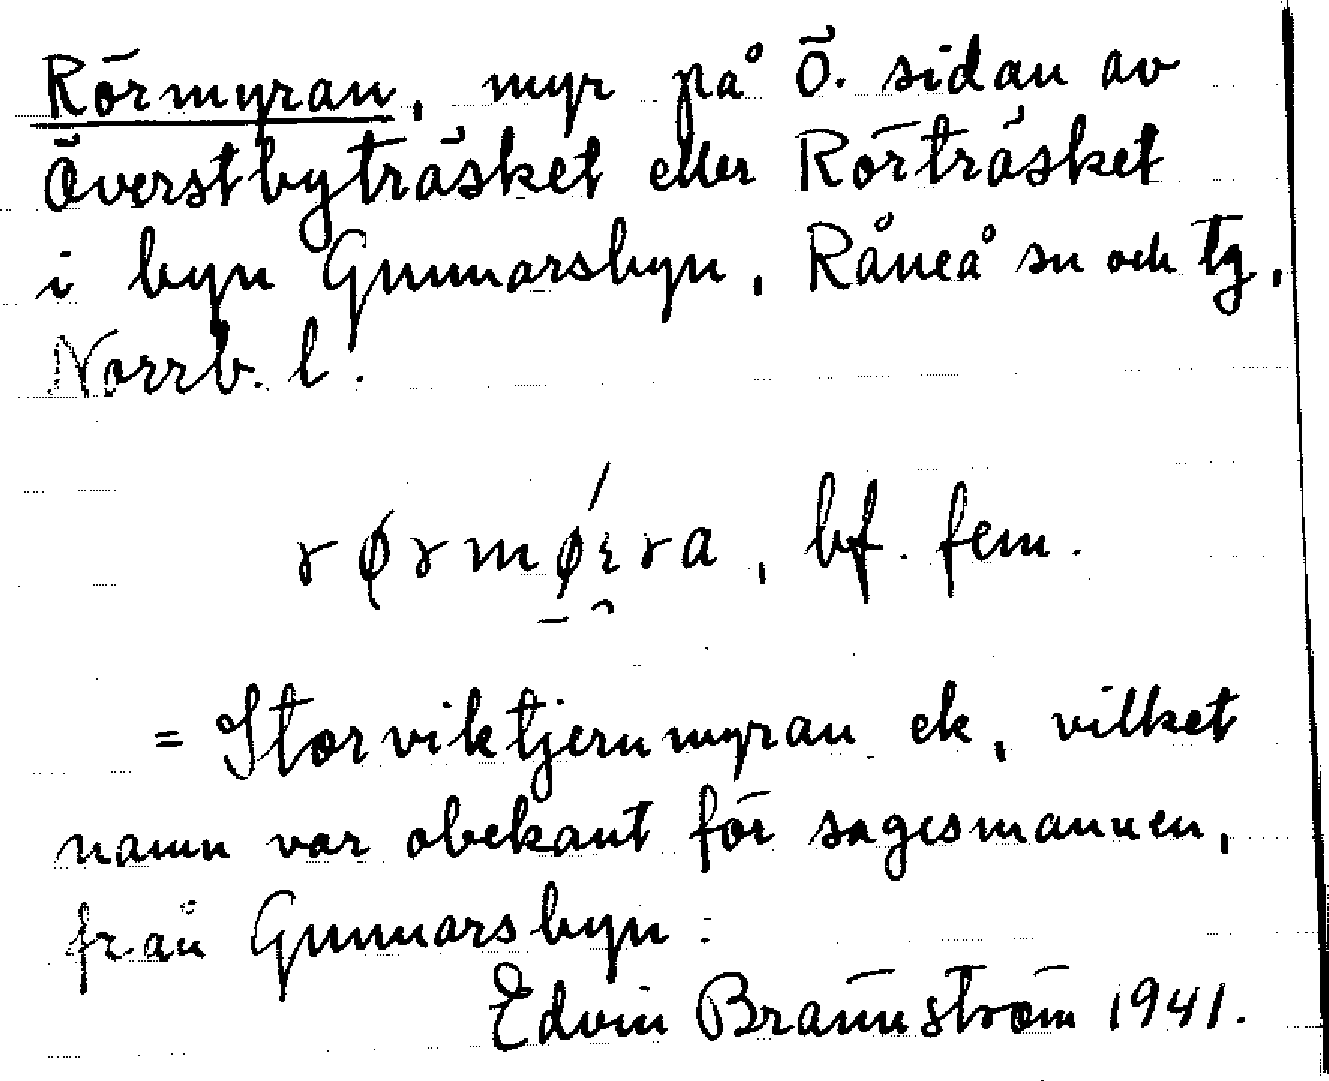 Rörmyran, myr på Ö. sidan av
Överstbyträsket eller Rörträsket
i byn Gunnarsbyn, Råneå sn och tg,
Norrb. l.
rørmøɩra, bf. fem.
= Storviktjernmyran ek, vilket
namn var obekant för sagesmannen,
från Gunnarsbyn.
Edvin Brännström 1941.